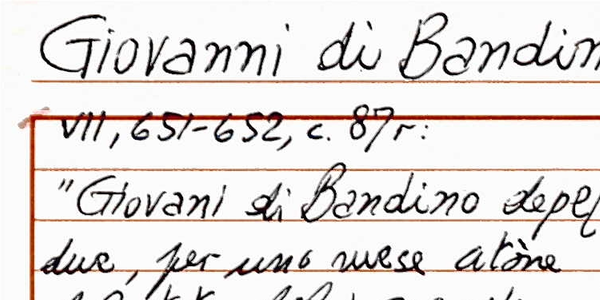 Giovanni di Bandin
VII, 651-652, c. 87r:
"Giovani di Bandino depe
due, per uno mese atòne